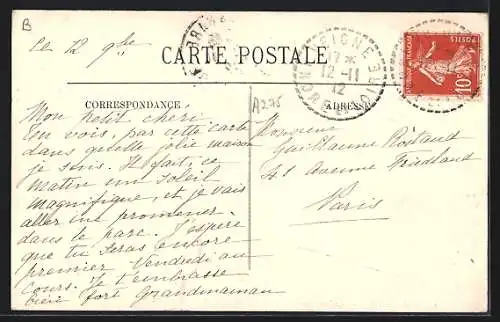 B
Le 12 9bre
CARTE POSTALE
CORRESPONDANCE
A275
ADRESSE
Mon petit chéri
Tu vois, par cette carte
dans quelle jolie maison
je suis. Il fait, ce
matin un soleil
magnifique, et je vais
aller me promener
dans le parc. J'espère
que tu seras encore
premier Vendredi au
cours. Je t'embrasse
bien fort Grandmaman
Monsieur
Guillaume Rostand
41 Avenue Friedland
Paris
12-11
12
POSTES
10